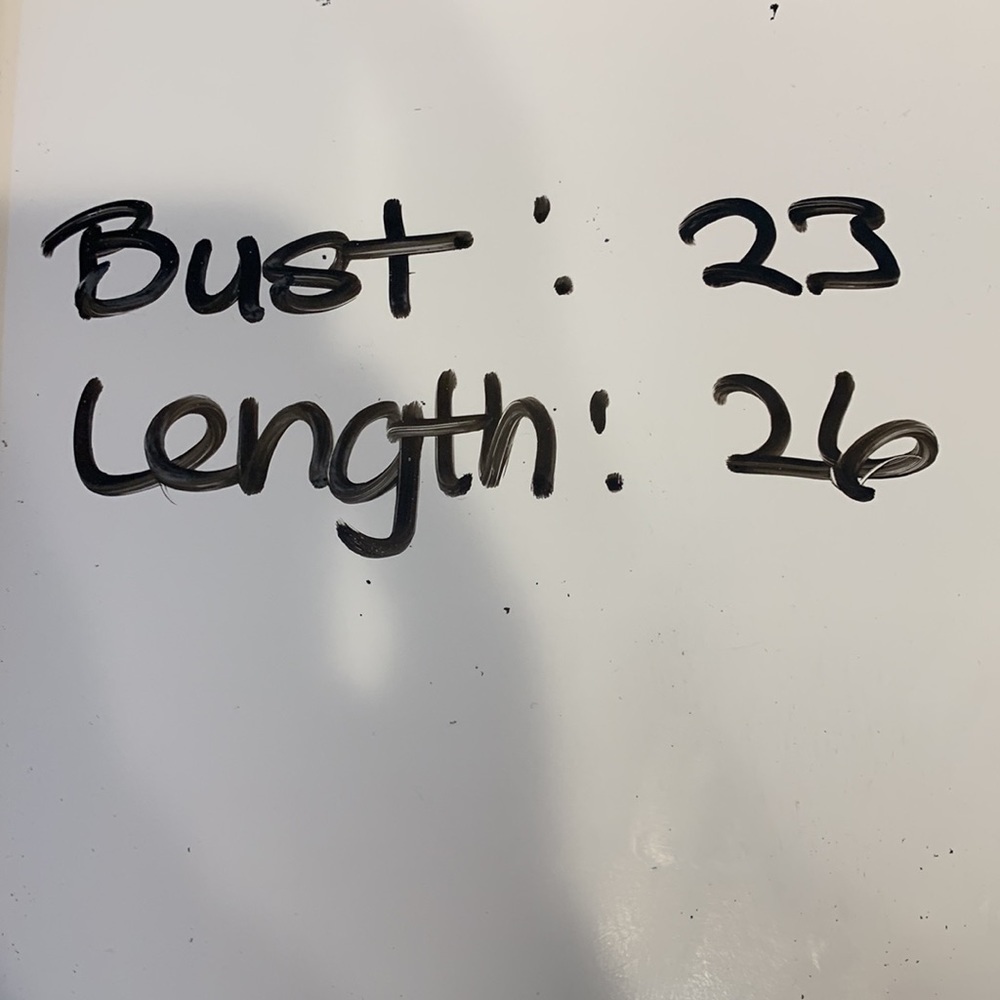 Bust : 23
Length : 26